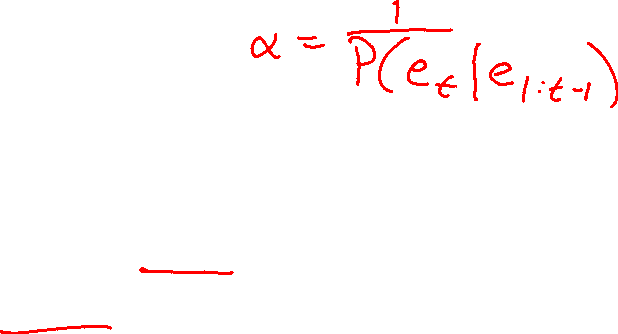 α = 1 / P(e_t | e_{1:t-1})